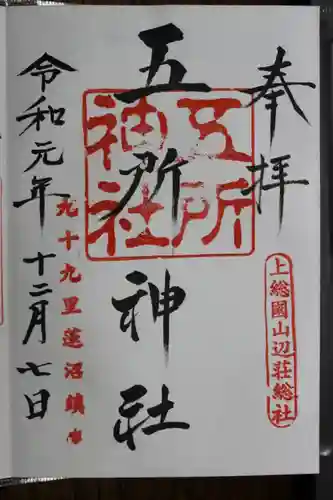 奉拝
上総國山辺荘総社
五所神社
五所神社
九十九里蓮沼鎮座
令和元年 十二月 七日